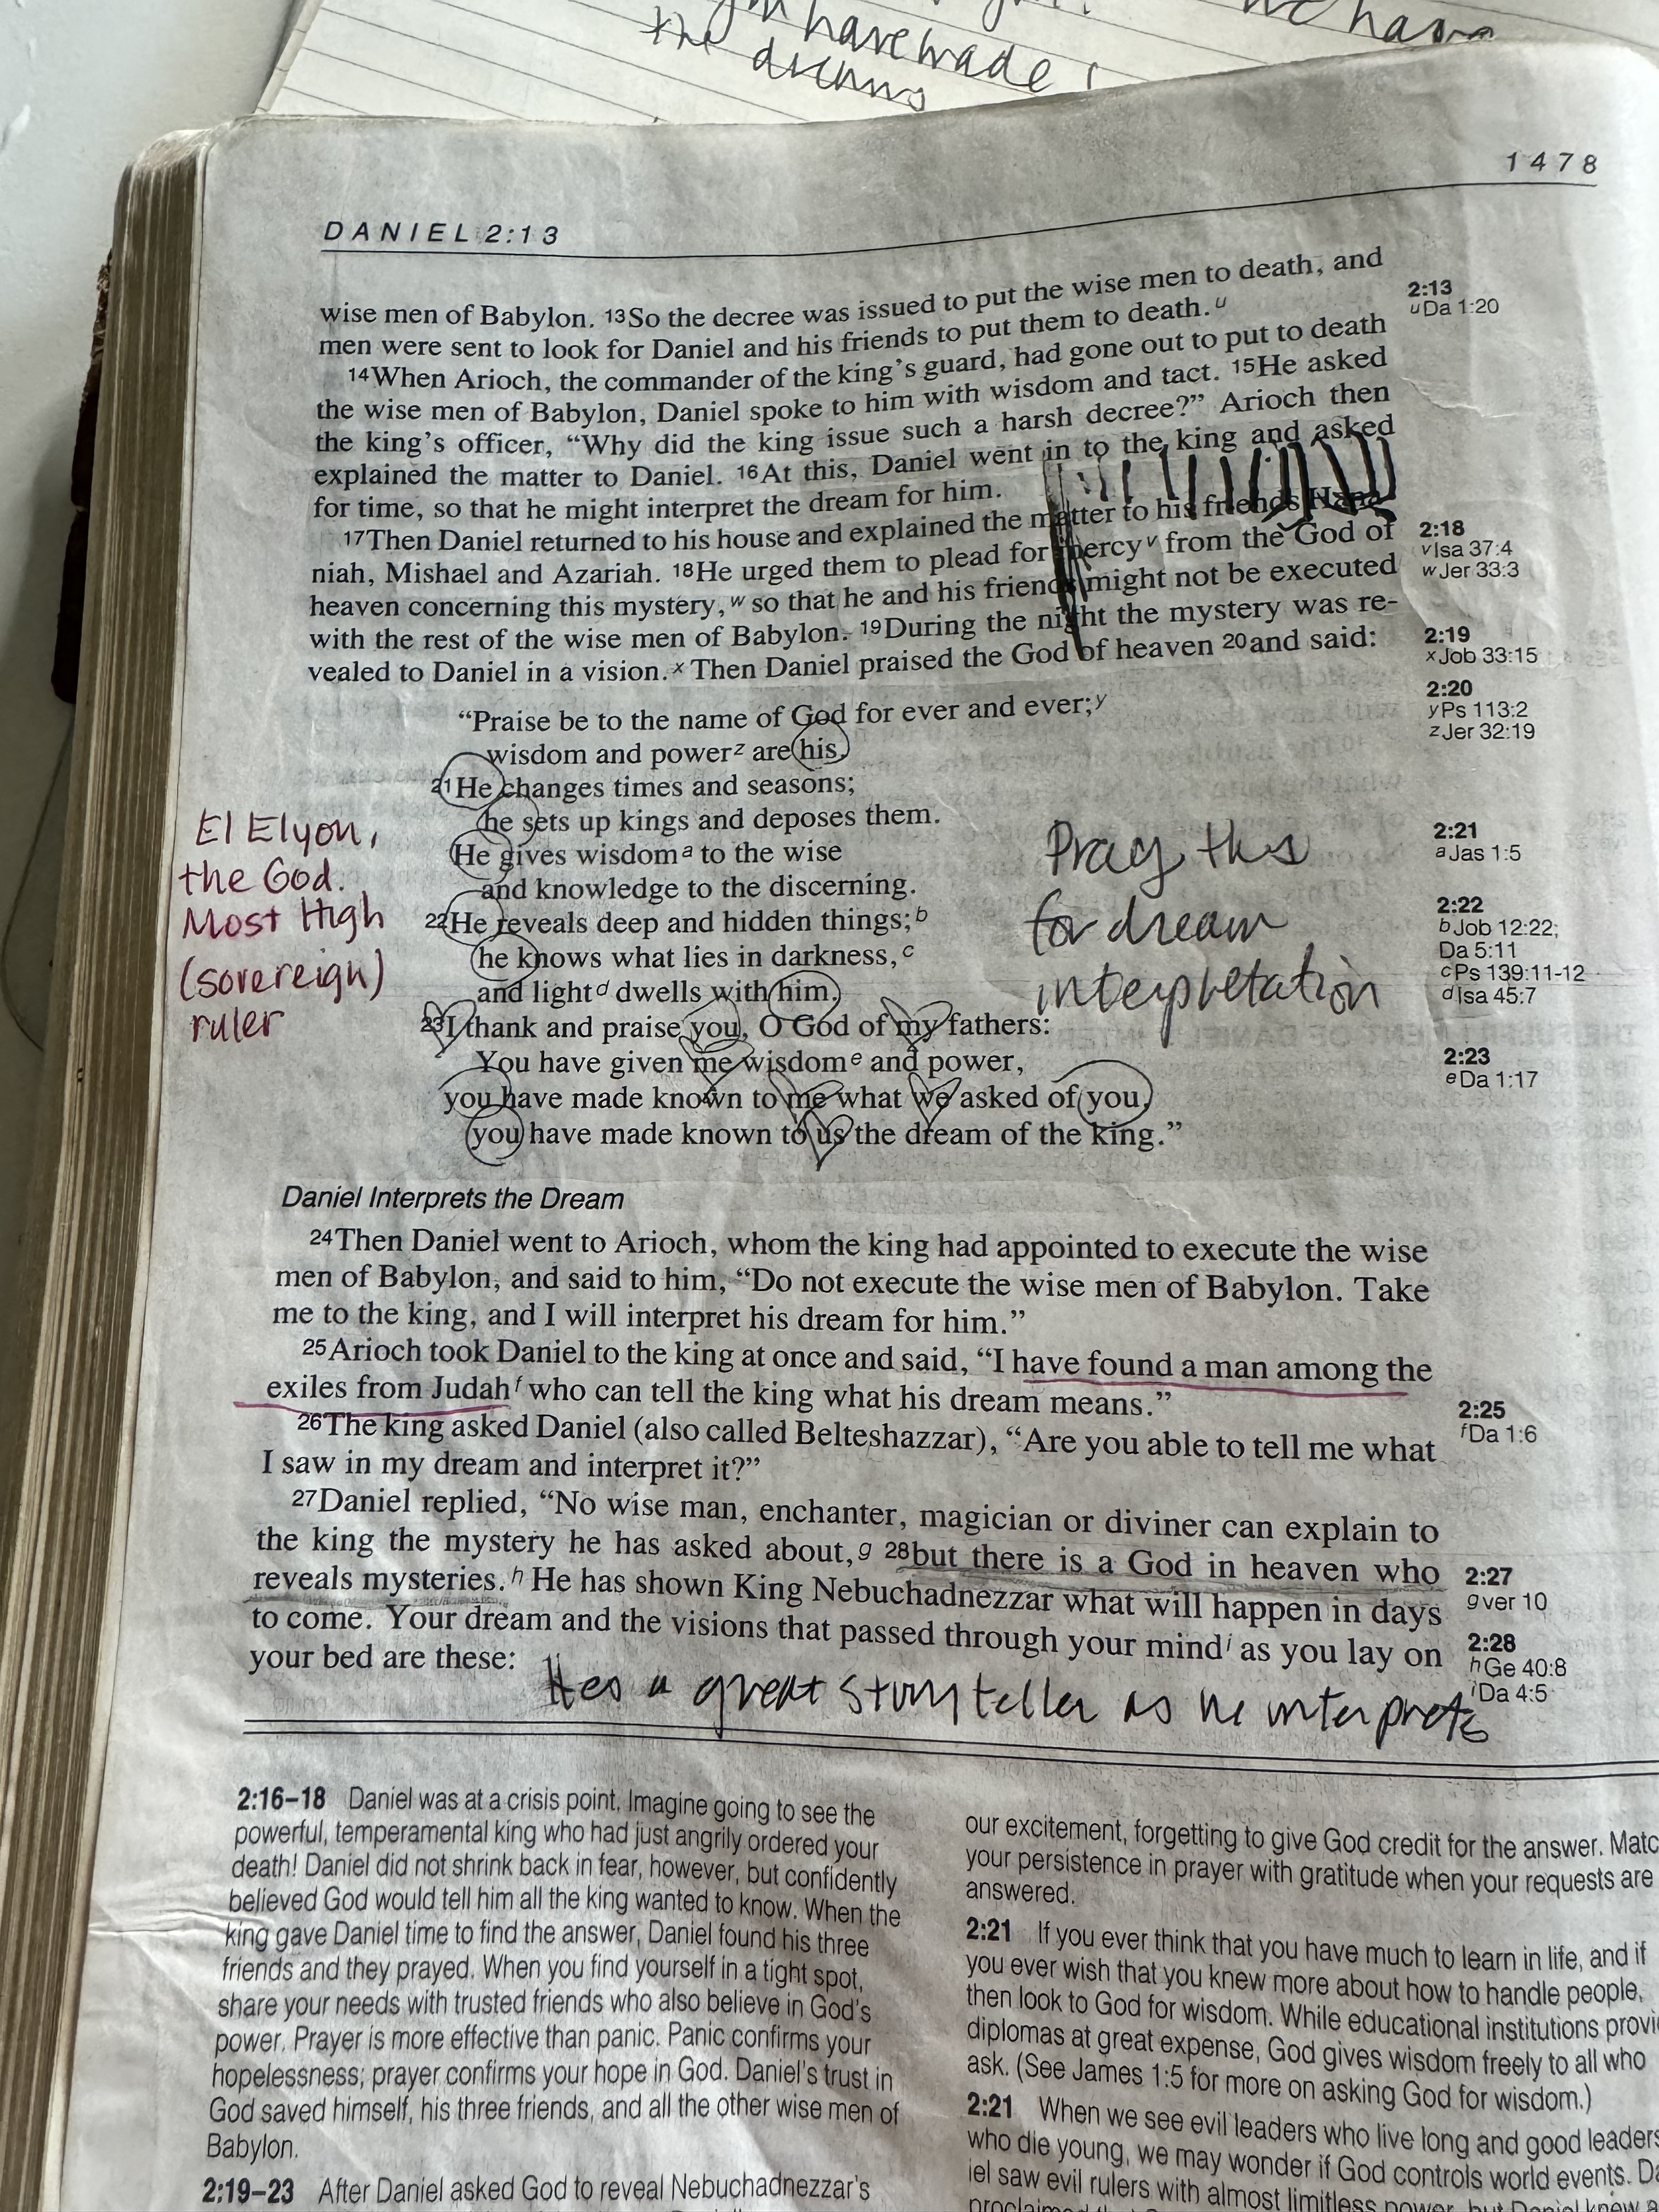 have made
we have
the dreams
1478
DANIEL 2:13
wise men of Babylon. 13So the decree was issued to put the wise men to death, and
men were sent to look for Daniel and his friends to put them to death.u
14When Arioch, the commander of the king's guard, had gone out to put to death
the wise men of Babylon, Daniel spoke to him with wisdom and tact. 15He asked
the king's officer, “Why did the king issue such a harsh decree?” Arioch then
explained the matter to Daniel. 16At this, Daniel went in to the king and asked
for time, so that he might interpret the dream for him.
17Then Daniel returned to his house and explained the matter to his friends Hana-
niah, Mishael and Azariah. 18He urged them to plead for mercyv from the God of
heaven concerning this mystery,w so that he and his friends might not be executed
with the rest of the wise men of Babylon. 19During the night the mystery was re-
vealed to Daniel in a vision.x Then Daniel praised the God of heaven 20and said:
“Praise be to the name of God for ever and ever;y
wisdom and powerz are his.
21He changes times and seasons;
he sets up kings and deposes them.
He gives wisdoma to the wise
and knowledge to the discerning.
22He reveals deep and hidden things;b
he knows what lies in darkness,c
and lightd dwells with him.
23I thank and praise you, O God of my fathers:
You have given me wisdome and power,
you have made known to me what we asked of you,
you have made known to us the dream of the king.”
El Elyon,
the God.
Most High
(sovereign)
ruler
Pray this
for dream
interpretation
Daniel Interprets the Dream
24Then Daniel went to Arioch, whom the king had appointed to execute the wise
men of Babylon, and said to him, “Do not execute the wise men of Babylon. Take
me to the king, and I will interpret his dream for him.”
25Arioch took Daniel to the king at once and said, “I have found a man among the
exiles from Judahf who can tell the king what his dream means.”
26The king asked Daniel (also called Belteshazzar), “Are you able to tell me what
I saw in my dream and interpret it?”
27Daniel replied, “No wise man, enchanter, magician or diviner can explain to
the king the mystery he has asked about,g 28but there is a God in heaven who
reveals mysteries.h He has shown King Nebuchadnezzar what will happen in days
to come. Your dream and the visions that passed through your mindi as you lay on
your bed are these:
Hes a great storyteller as he interprets
2:13
uDa 1:20
2:18
vIsa 37:4
wJer 33:3
2:19
xJob 33:15
2:20
yPs 113:2
zJer 32:19
2:21
aJas 1:5
2:22
bJob 12:22;
Da 5:11
cPs 139:11-12
dIsa 45:7
2:23
eDa 1:17
2:25
fDa 1:6
2:27
gver 10
2:28
hGe 40:8
iDa 4:5
2:16–18 Daniel was at a crisis point. Imagine going to see the
powerful, temperamental king who had just angrily ordered your
death! Daniel did not shrink back in fear, however, but confidently
believed God would tell him all the king wanted to know. When the
king gave Daniel time to find the answer, Daniel found his three
friends and they prayed. When you find yourself in a tight spot,
share your needs with trusted friends who also believe in God's
power. Prayer is more effective than panic. Panic confirms your
hopelessness; prayer confirms your hope in God. Daniel's trust in
God saved himself, his three friends, and all the other wise men of
Babylon.
2:19–23 After Daniel asked God to reveal Nebuchadnezzar's
our excitement, forgetting to give God credit for the answer. Matc
your persistence in prayer with gratitude when your requests are
answered.
2:21 If you ever think that you have much to learn in life, and if
you ever wish that you knew more about how to handle people,
then look to God for wisdom. While educational institutions provi
diplomas at great expense, God gives wisdom freely to all who
ask. (See James 1:5 for more on asking God for wisdom.)
2:21 When we see evil leaders who live long and good leaders
who die young, we may wonder if God controls world events. Da
iel saw evil rulers with almost limitless power, but Daniel knew a